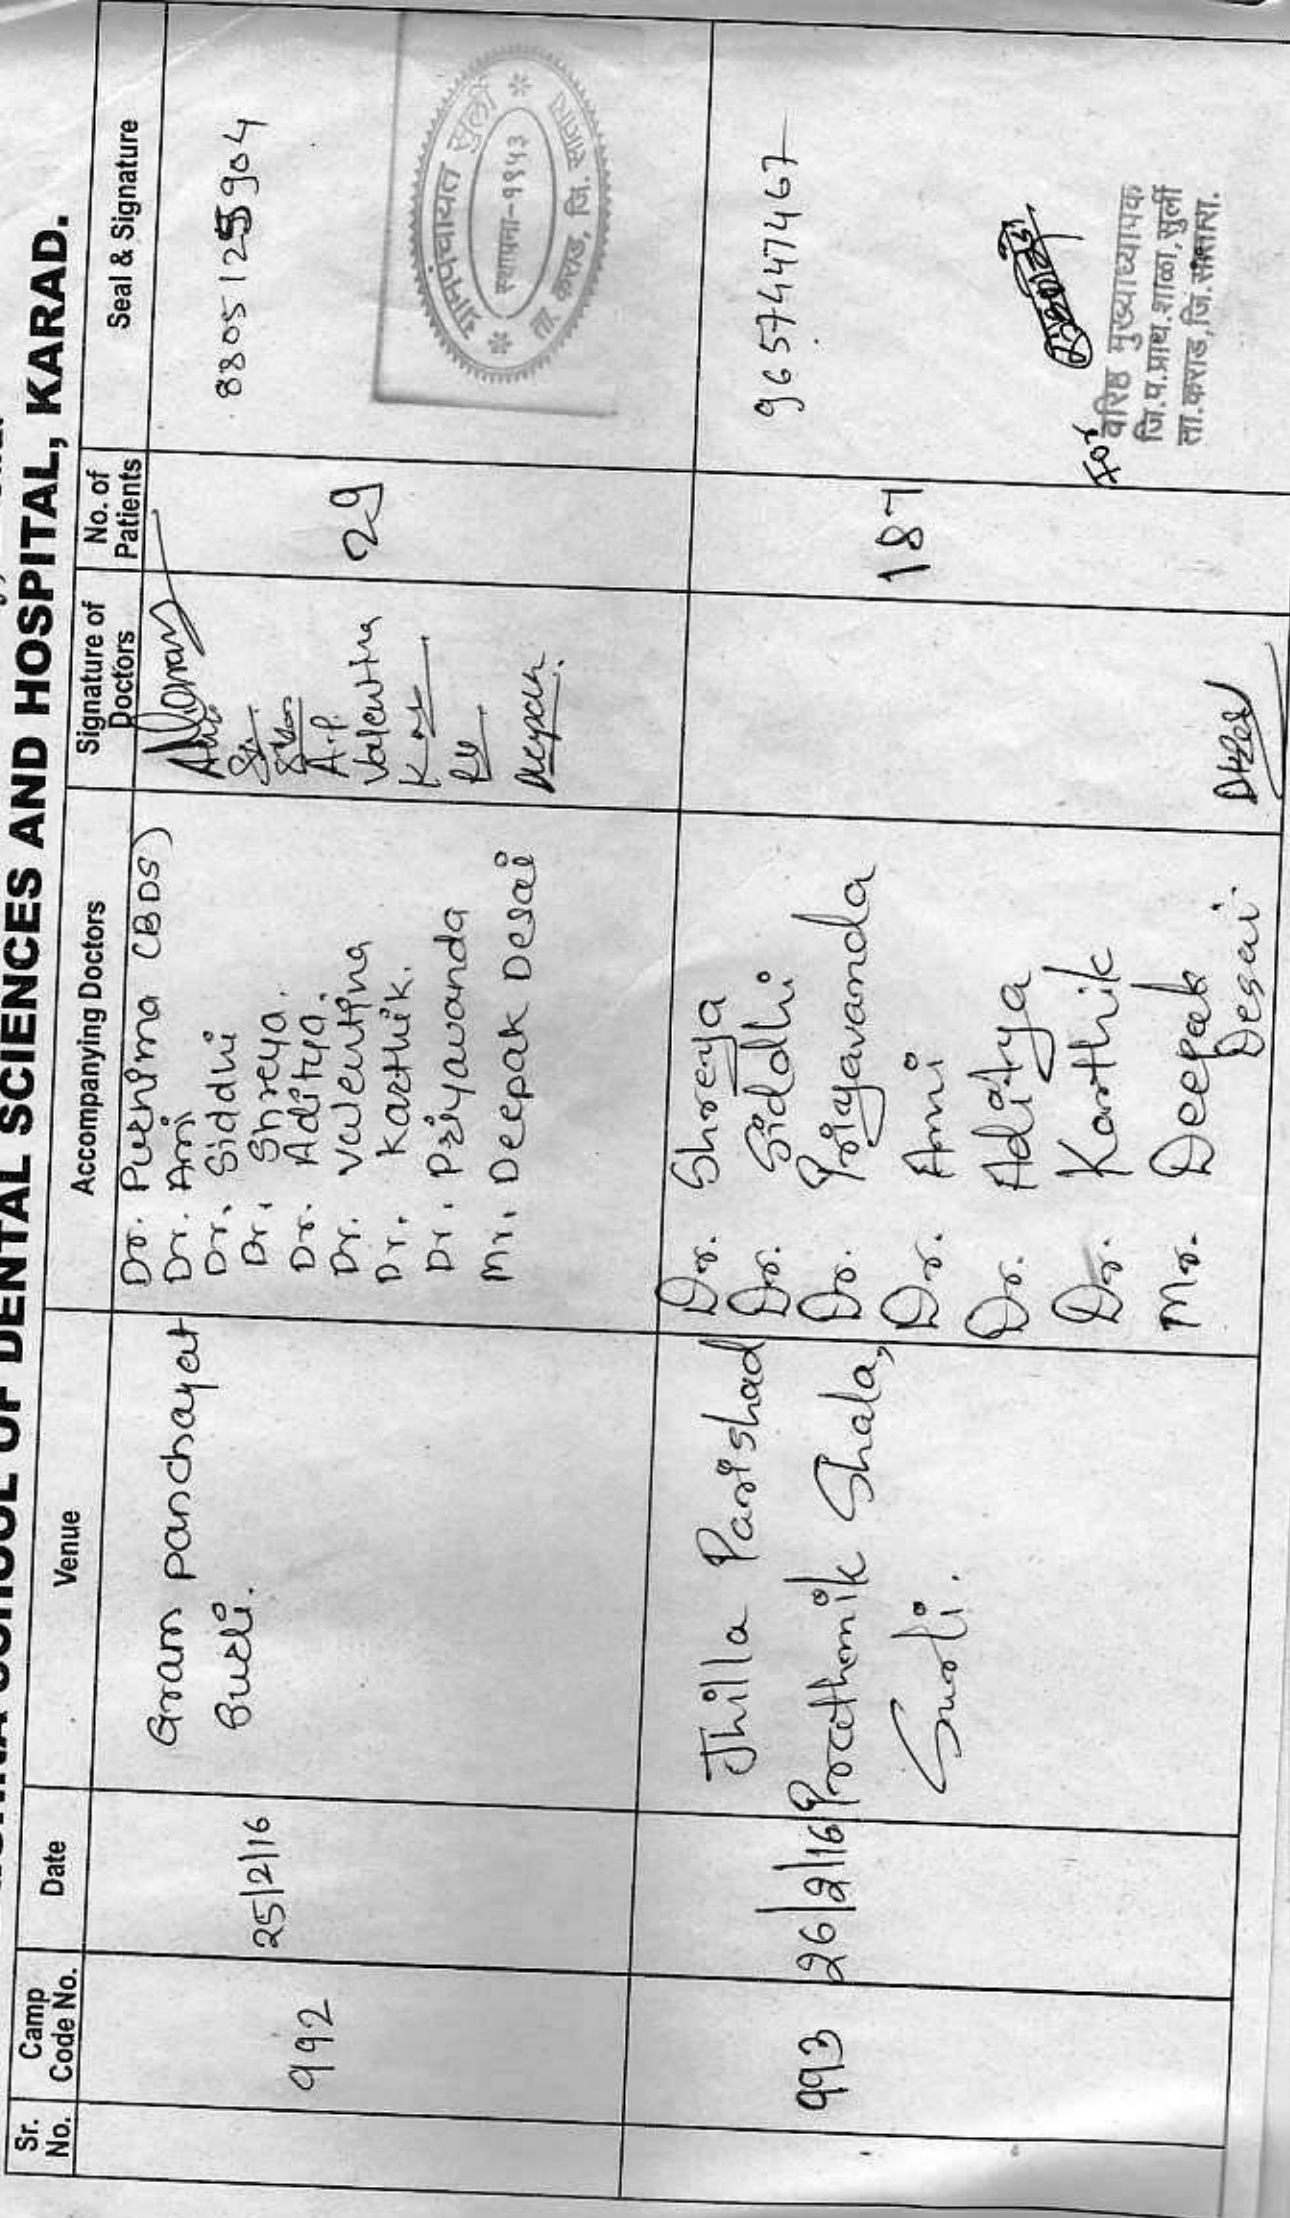 SCHOOL OF DENTAL SCIENCES AND HOSPITAL, KARAD.
Sr. No.
Camp Code No.
Date
Venue
Accompanying Doctors
Signature of Doctors
No. of Patients
Seal & Signature
992
25/2/16
Gram panchayat
Surli.
Dr. Purnima (BDS)
Dr. Ami
Dr. Siddhi
Dr. Shreya.
Dr. Aditya.
Dr. Valentina
Dr. Karthik.
Dr. Priyavanda
Mr. Deepak Desai
A.P.
Valentina
29
ग्रामपंचायत सुर्ली
स्थापना-१९५३
ता. कराड, जि. सातारा
993
26/2/16
Jhilla Parishad
Prathmik Shala,
Surli.
Dr. Shreya
Dr. Siddhi
Dr. Priyavamda
Dr. Ami
Dr. Aditya
Dr. Karthik
Mr. Deepak
Desai.
187
9657447467
For
वरिष्ठ मुख्याध्यापक
जि.प.प्राथ.शाळा, सुर्ली
ता.कराड, जि.सातारा.